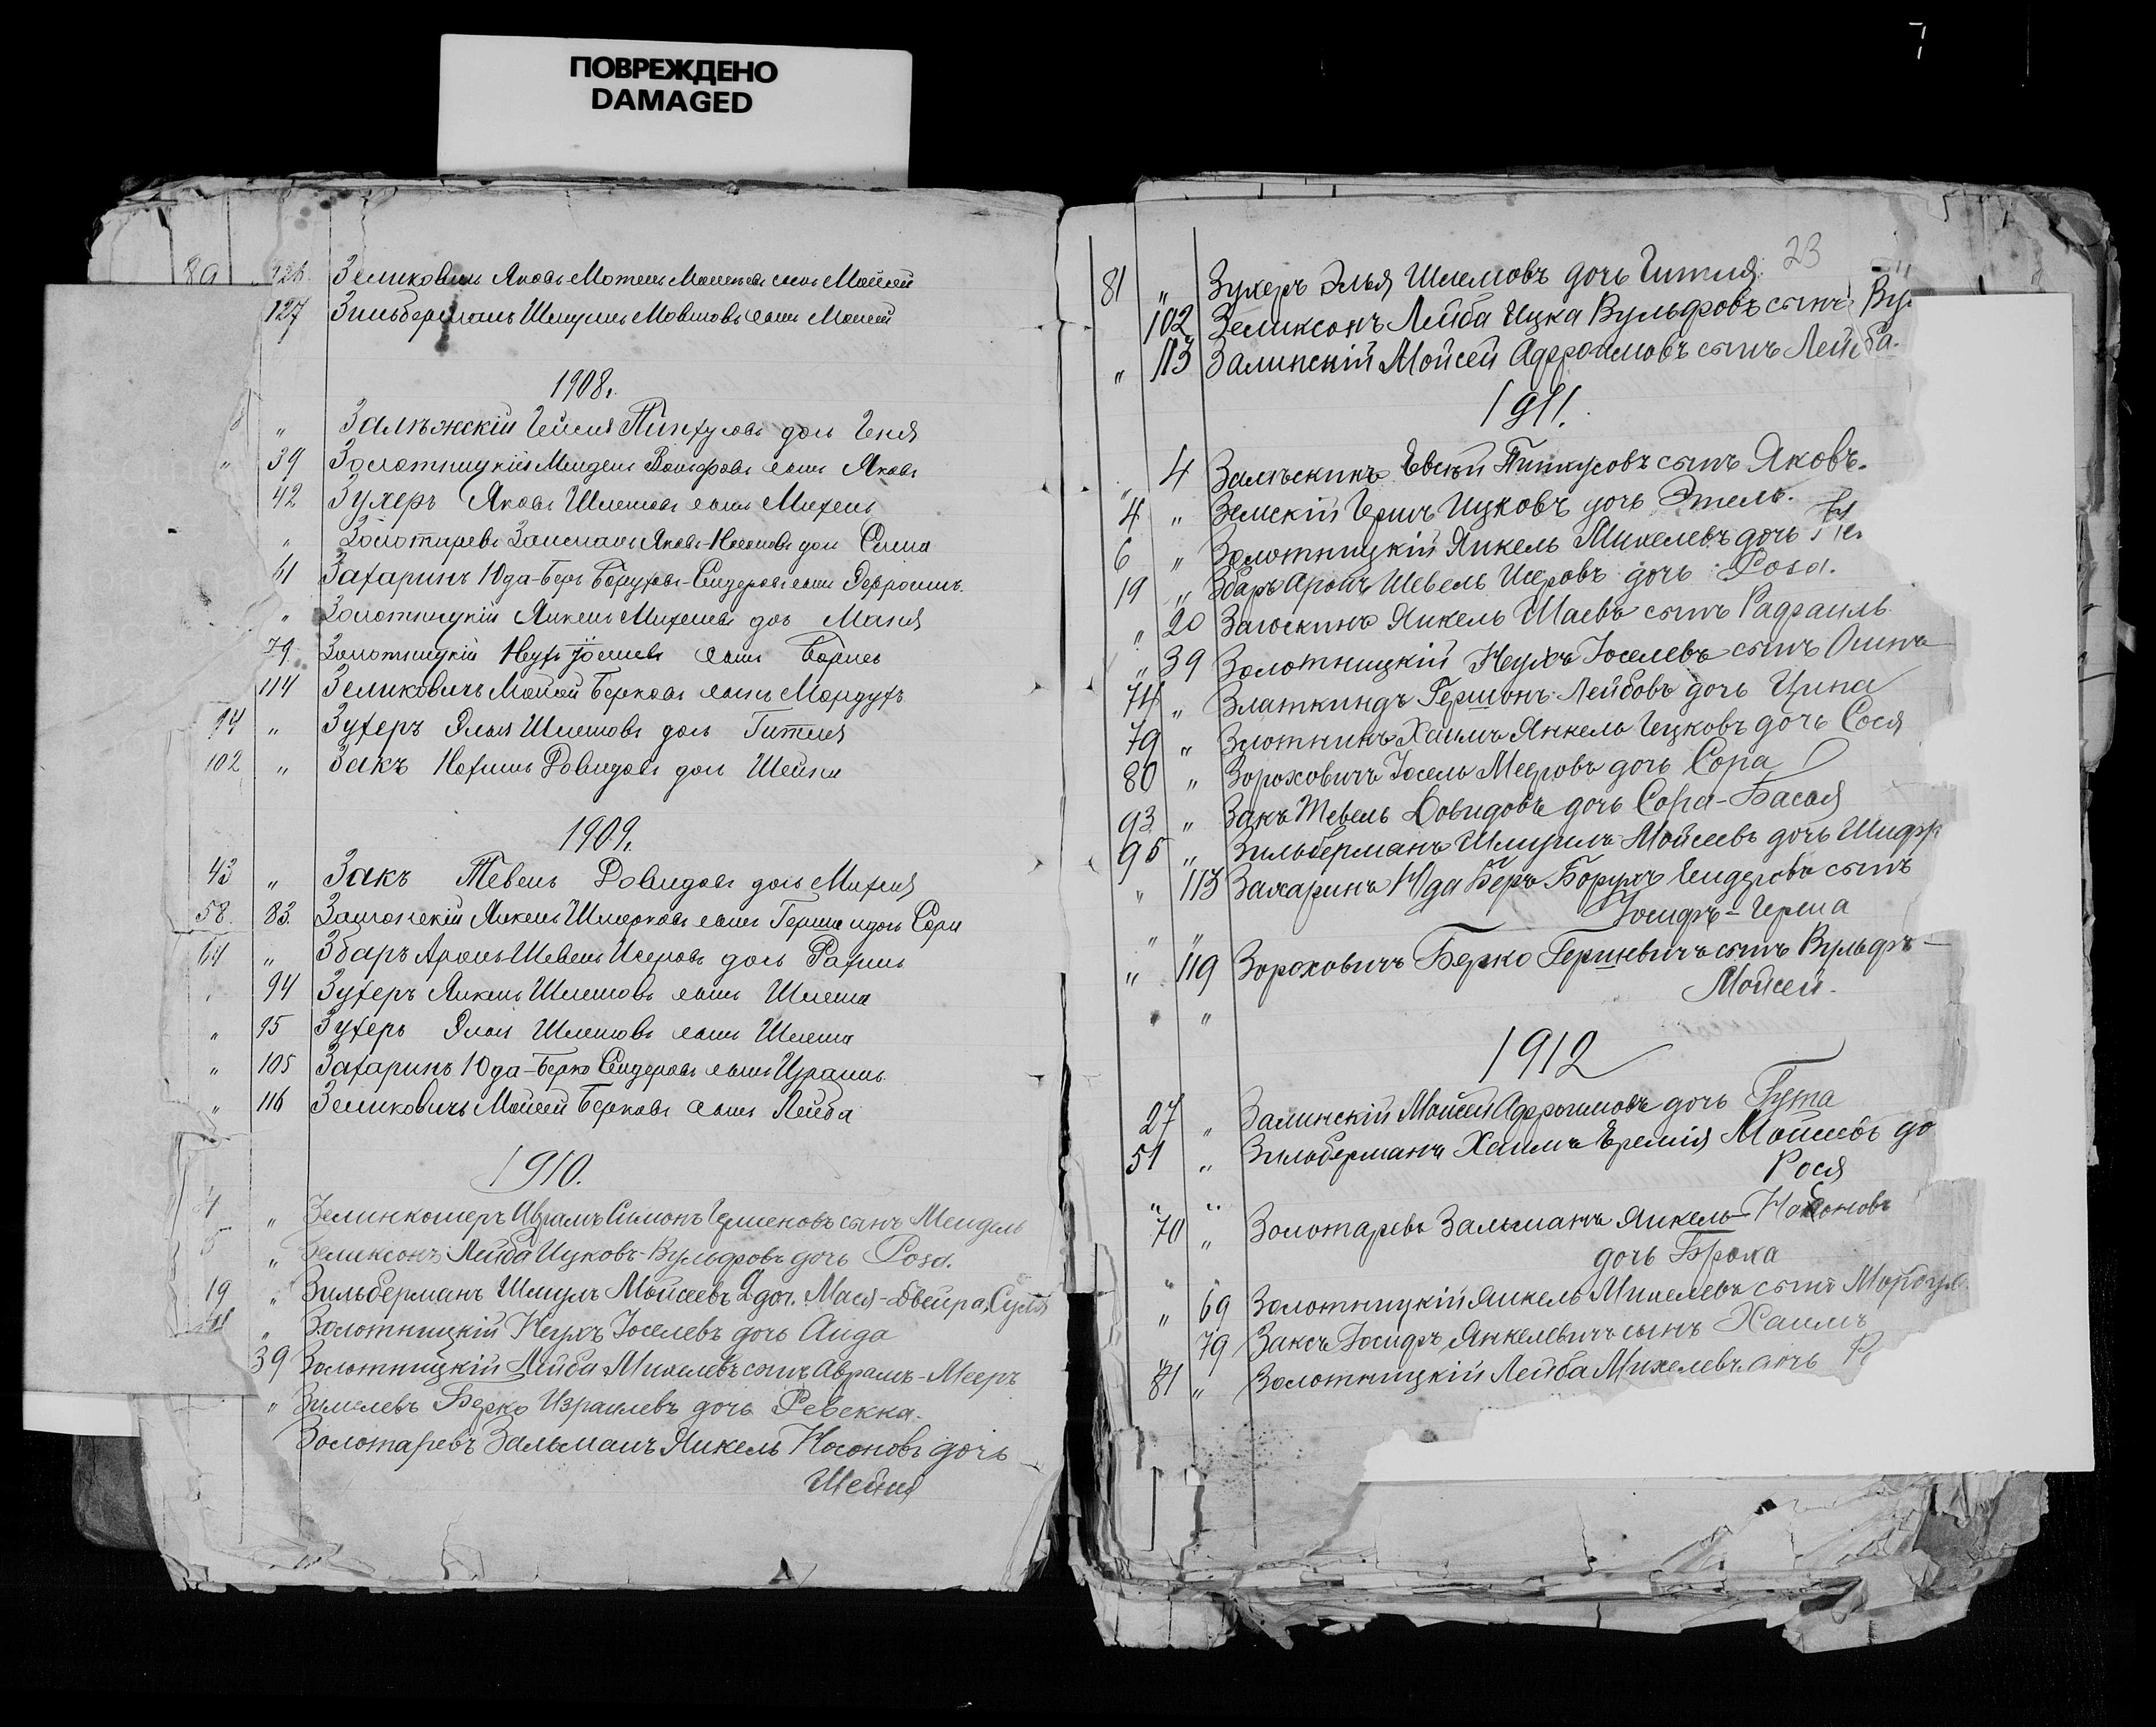 ПОВРЕЖДЕНО
DAMAGED
89 126 Зеликовичъ Яковъ Мотель сынъ Мойсей
127 Зильберманъ Шмуль Мовшовъ сынъ Мойсей
1908.
" Залѣжскій Пинхусовъ дочь Геня
" 39 Золотницкій Мендель Вольфовъ сынъ Яковъ
42 Зухеръ Яковъ Шлемовъ сынъ Михель
" Золотаревъ Залманъ Яковъ-Носоновъ дочь Сима
61 Захаринъ Юда-Беръ Боруховъ-Сендеровъ сынъ
" Золотницкій Янкель Михелевъ дочь Маня
79 Золотницкій Неухъ Іоселевъ сынъ Борисъ
114 Зеликовичъ Мойсей Берковъ сынъ Мордухъ
94 " Зухеръ Элья Шлемовъ дочь Гитля
102 " Закъ Довидовъ дочь Шейна
1909.
43 " Закъ Тевель Довидовъ дочь Михля
58 83 Янкель Шмерковъ сынъ Герша и дочь Сора
64 " Збаръ Аронъ Шевель Исеровъ дочь Рахиль
" 94 Зухеръ Янкель Шлемовъ сынъ Шлема
" 95 Зухеръ Элья Шлемовъ сынъ Шлема
" 105 Захаринъ Юда-Берко Сендеровъ сынъ Израиль
" 116 Зеликовичъ Мойсей Берковъ сынъ Лейба
1910.
4 " Абрамъ Симонъ сынъ Мендель
5 " Зеликсонъ Лейба Ицковъ-Вульфовъ дочь Роза.
19 " Зильберманъ Шмулъ Мойсеевъ 2 доч. Мася-Двейра,
" Золотницкій Неухъ Іоселевъ дочь Аида
39 Золотницкій Лейба Михелевъ сынъ Абрамъ-Мееръ
" Берко Израилевъ дочь Ревекка.
Золотаревъ Зальманъ Янкель Носоновъ дочь
Шейня
23
81 " Зухеръ Элья Шлемовъ дочь Гитля
102 Зеликсонъ Лейба Ицка Вульфовъ сынъ
" 113 Залинскій Мойсей Афроимовъ сынъ Лейба.
1911.
" 4 Евсѣй Пинкусовъ сынъ Яковъ.
4 " Земскій Герцъ Ицковъ дочь Этель.
6 " Золотницкій Янкель Михелевъ дочь
19 " Збаръ Аронъ Шевель Исеровъ дочь Роза.
" 20 Янкель Шаевъ сынъ Рафаилъ
" 39 Золотницкій Неухъ Іоселевъ сынъ
74 " Златкиндъ Гершонъ Лейбовъ дочь Цина
79 " Злотникъ Хаимъ Янкель Ицковъ дочь Сося
80 " Зороховичъ Іосель Мееровъ дочь Сора
93 " Закъ Тевель Довидовъ дочь Сора-Бася
95 " Зильберманъ Шмуилъ Мойсеевъ дочь Шифр
" 113 Захаринъ Юда Беръ Борухъ Сендеровъ сынъ
Іосифъ-Герша
" "
" 119 Зороховичъ Берко Гершевичъ сынъ Вульфъ-
Мойсей.
" "
1912
27 " Залинскій Мойсей Афроимовъ дочь Гута
51 " Зильберманъ Хаимъ Еремія Мойсеевъ до
Рося
" "
70 " Золотаревъ Зальманъ Янкель-Носоновъ
дочь Броха
"
" 69 Золотницкій Янкель Михелевъ сынъ
" 79 Заксъ Іосифъ Янкелевичъ сынъ Хаимъ
81 " Золотницкій Лейба Михелевъ дочь